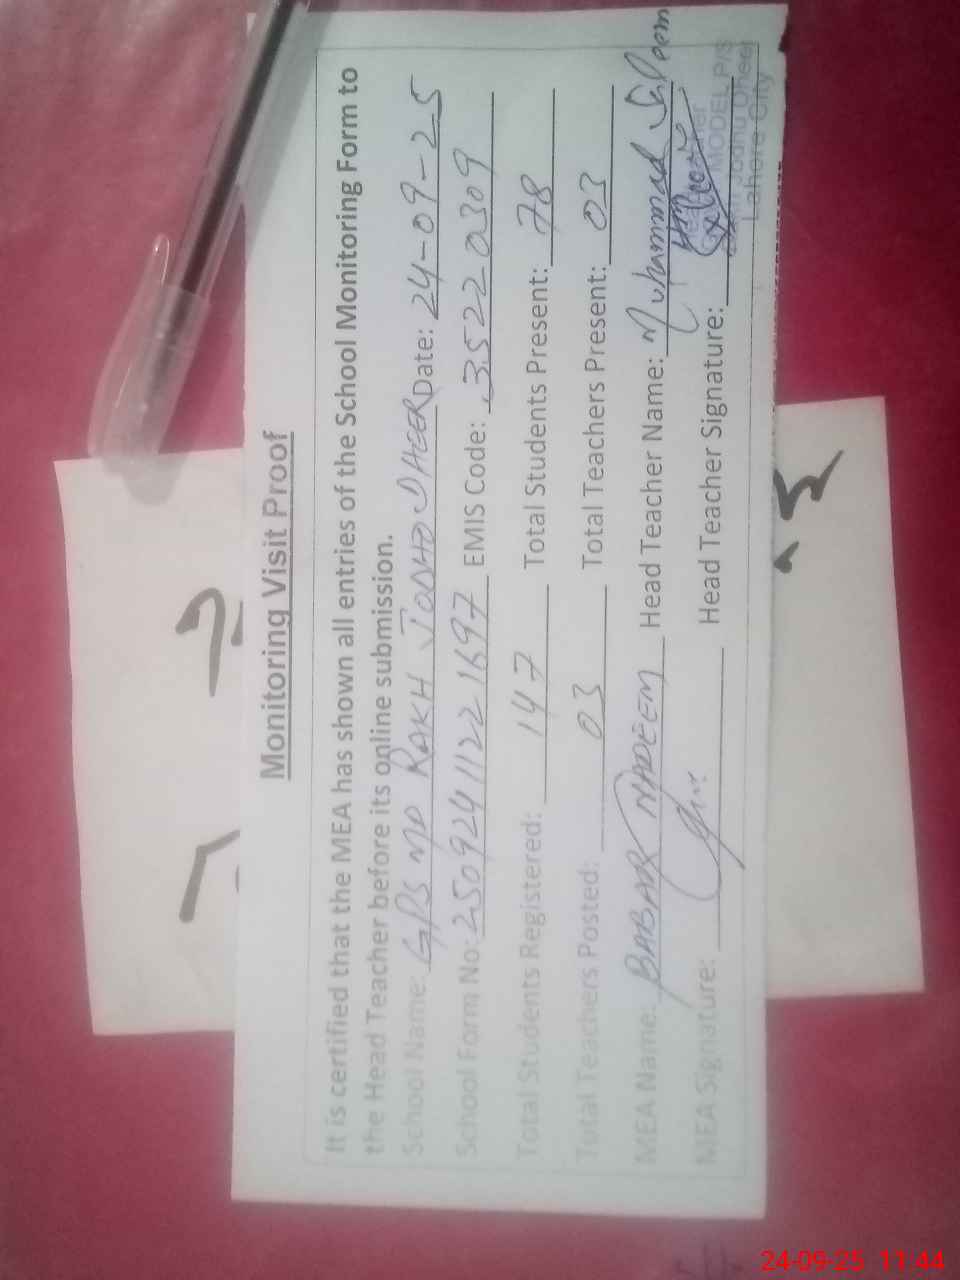 Monitoring Visit Proof
It is certified that the MEA has shown all entries of the School Monitoring Form to
the Head Teacher before its online submission.
School Name: GPS MD RAKH JODHU DHEER Date: 24-09-25
School Form No: 2509241122 1697 EMIS Code: 35220309
Total Students Registered: 147 Total Students Present: 78
Total Teachers Posted: 03 Total Teachers Present: 03
MEA Name: BABAR NADEEM Head Teacher Name: Muhammad Saleem
MEA Signature: Head Teacher Signature:
MODEL P/S
Jodhu Dheer
Lahore City
24-09-25 11:44